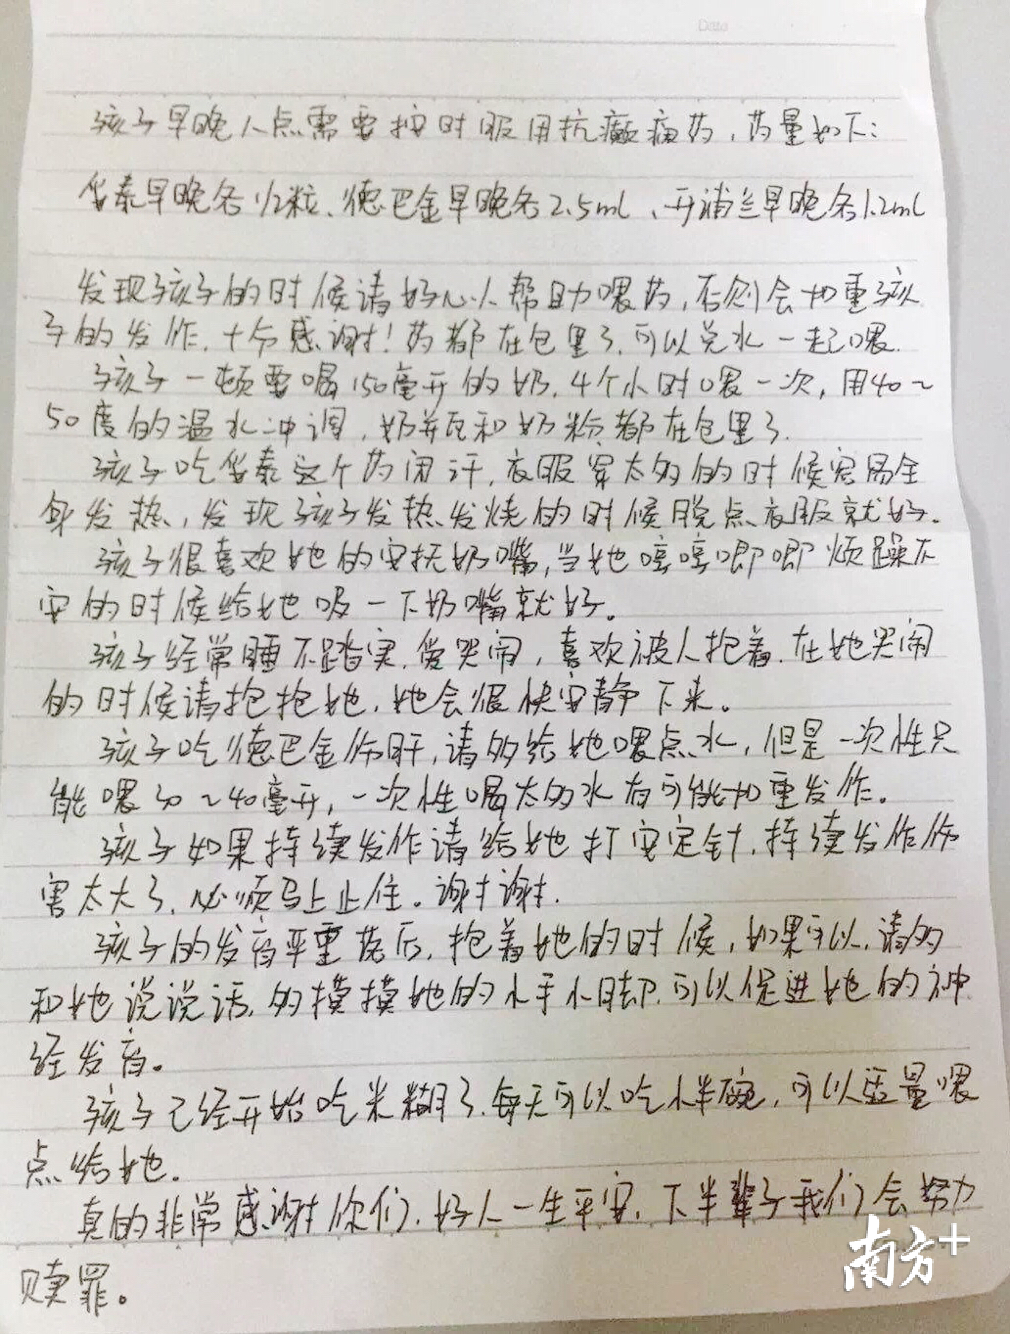 Date
孩子早晚八点需要按时服用抗癫痫药，药量如下：
妥泰早晚各1/2粒、德巴金早晚各2.5ml、开浦兰早晚各1.2ml
发现孩子的时候请好心人帮助喂药，否则会加重孩
子的发作，十分感谢！药都在包里了，可以兑水一起喂.
孩子一顿要喝150毫升的奶，4个小时喂一次，用40~
50度的温水冲调，奶瓶和奶粉都在包里了.
孩子吃妥泰这个药闭汗，衣服穿太多的时候容易全
身发热，发现孩子发热发烧的时候脱点衣服就好.
孩子很喜欢她的安抚奶嘴，当她哼哼唧唧烦躁不
安的时候给她吸一下奶嘴就好。
孩子经常睡不踏实，爱哭闹，喜欢被人抱着，在她哭闹
的时候请抱抱她，她会很快安静下来。
孩子吃德巴金伤肝，请多给她喂点水，但是一次性只
能喂30~40毫升，一次性喝太多水有可能加重发作。
孩子如果持续发作请给她打安定针，持续发作伤
害太大了，必须马上止住。谢谢谢谢.
孩子的发育严重落后，抱着她的时候，如果可以，请多
和她说说话，多摸摸她的小手小脚，可以促进她的神
经发育。
孩子已经开始吃米糊了，每天可以吃小半碗，可以适量喂
点给她.
真的非常感谢你们，好人一生平安，下半辈子我们会努力
赎罪。
南方+